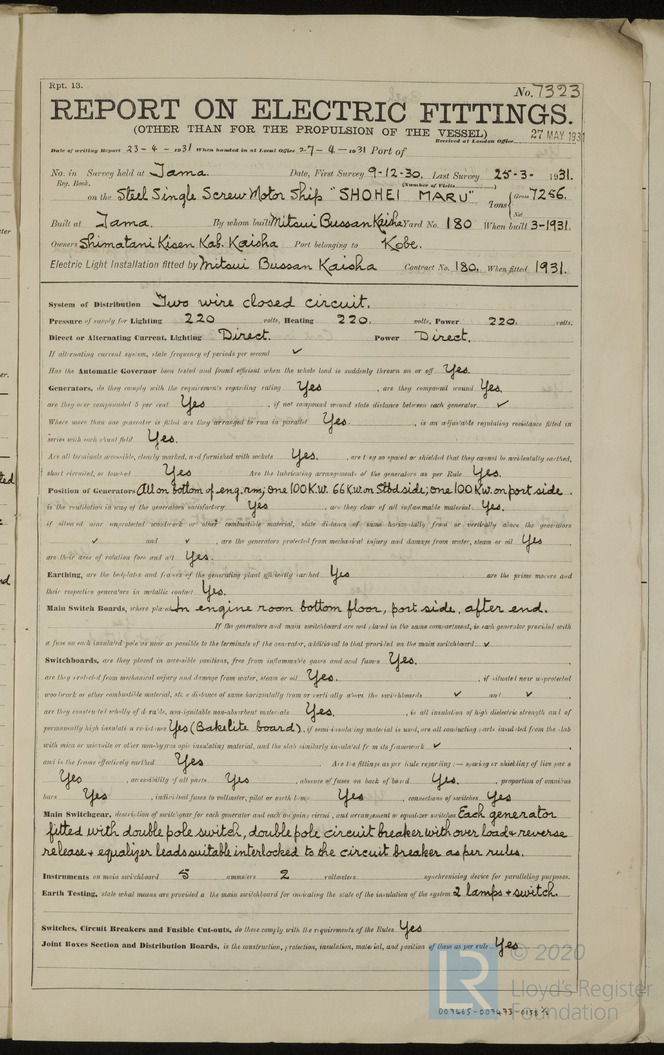 Rpt. 13.
No. 7323
REPORT ON ELECTRIC FITTINGS.
(OTHER THAN FOR THE PROPULSION OF THE VESSEL)
Received at London Office 27 MAY 1931
Date of writing Report 23-4-1931 When handed in at Local Office 27-4-1931 Port of
No. in Survey held at Tama. Date, First Survey 9-12-30. Last Survey 25-3-1931.
Reg. Book. (Number of Visits
on the Steel Single Screw Motor Ship "SHOHEI MARU" Tons { Gross 7256.
Net
Built at Tama. By whom built Mitsui Bussan Kaisha Yard No. 180 When built 3-1931.
Owners Shimatani Kisen Kab. Kaisha Port belonging to Kobe.
Electric Light Installation fitted by Mitsui Bussan Kaisha Contract No. 180. When fitted 1931.
System of Distribution Two wire closed circuit.
Pressure of supply for Lighting 220 volts, Heating 220. volts, Power 220. volts.
Direct or Alternating Current, Lighting Direct. Power Direct.
If alternating current system, state frequency of periods per second ✓
Has the Automatic Governor been tested and found efficient when the whole load is suddenly thrown on or off Yes.
Generators, do they comply with the requirements regarding rating Yes , are they compound wound Yes.
are they over compounded 5 per cent. Yes , if not compound wound state distance between each generator ✓
Where more than one generator is fitted are they arranged to run in parallel Yes. , is an adjustable regulating resistance fitted in
series with each shunt field Yes.
Are all terminals accessible, clearly marked, and furnished with sockets Yes. , are they so spaced or shielded that they cannot be accidentally earthed,
short circuited, or touched Yes Are the lubricating arrangements of the generators as per Rule Yes.
Position of Generators All on bottom of eng. rm; one 100 K.W. 66 K.W. on Stbd side; one 100 K.W. on port side.
is the ventilation in way of the generators satisfactory Yes , are they clear of all inflammable material Yes.
if situated near unprotected woodwork or other combustible material, state distance of same horizontally from or vertically above the generators
✓ and ✓ , are the generators protected from mechanical injury and damage from water, steam or oil Yes
are their axes of rotation fore and aft Yes.
Earthing, are the bedplates and frames of the generating plant efficiently earthed Yes are the prime movers and
their respective generators in metallic contact Yes.
Main Switch Boards, where placed In engine room bottom floor, port side, after end.
If the generators and main switchboard are not placed in the same compartment, is each generator provided with
a fuse on each insulated pole as near as possible to the terminals of the generator, additional to that provided on the main switchboard ✓
Switchboards, are they placed in accessible positions, free from inflammable gases and acid fumes Yes.
are they protected from mechanical injury and damage from water, steam or oil Yes. , if situated near unprotected
woodwork or other combustible material, state distance of same horizontally from or vertically above the switchboards ✓ and ✓
are they constructed wholly of durable, non-ignitable non-absorbent materials Yes. , is all insulation of high dielectric strength and of
permanently high insulation resistance Yes (Bakelite board), if semi-insulating material is used, are all conducting parts insulated from the slab
with mica or micanite or other non-hygroscopic insulating material, and the slab similarly insulated from its framework ✓
and is the frame effectively earthed Yes Are the fittings as per Rule regarding:— spacing or shielding of live parts
Yes , accessibility of all parts Yes , absence of fuses on back of board Yes. , proportion of omnibus
bars Yes , individual fuses to voltmeter, pilot or earth lamp Yes , connections of switches Yes
Main Switchgear, description of switchgear for each generator and each outgoing circuit, and arrangement of equalizer switches Each generator
fitted with double pole switch, double pole circuit breaker with over load & reverse
release & equalizer leads suitable interlocked to the circuit breaker as per rules.
Instruments on main switchboard 5 ammeters 2 voltmeters synchronising device for paralleling purposes.
Earth Testing, state what means are provided at the main switchboard for indicating the state of the insulation of the system 2 lamps & switch.
Switches, Circuit Breakers and Fusible Cut-outs, do these comply with the requirements of the Rules Yes
Joint Boxes Section and Distribution Boards, is the construction, protection, insulation, material, and position of these as per rule Yes
© 2020
LR
Lloyd's Register
Foundation